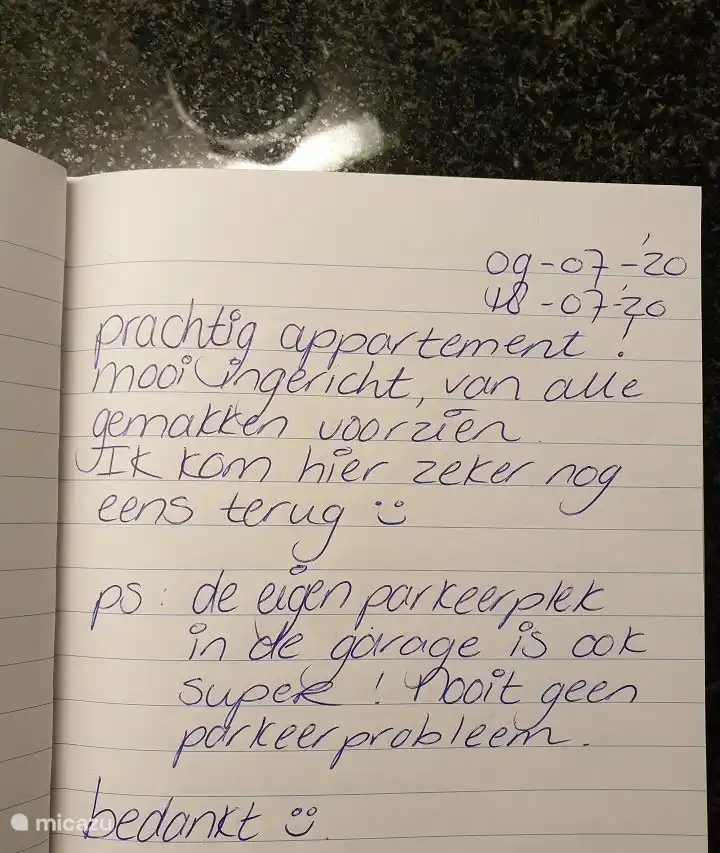 09-07-'20
18-07-'20
prachtig appartement!
mooi ingericht, van alle
gemakken voorzien.
Ik kom hier zeker nog
eens terug :)
ps: de eigen parkeerplek
in de garage is ook
super! Nooit geen
parkeerprobleem.
bedankt :)
micazu